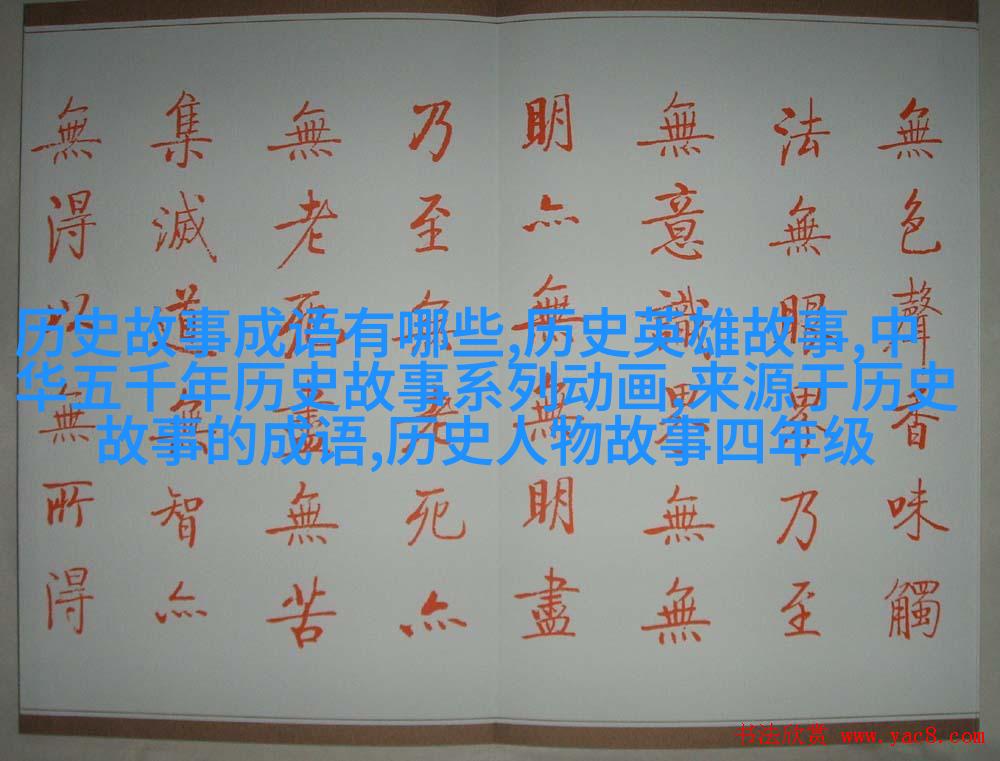 無色聲香味觸
法無眼界乃至
無意識界無無
明亦無無明盡
乃至無老死亦
無老死盡無苦
集滅道無智亦
無得以無所得
历史故事成语有哪些,历史英雄故事,中
华五千年历史故事系列动画,来源于历史
故事的成语,历史人物故事四年级
书法欣赏 www.yac8.com